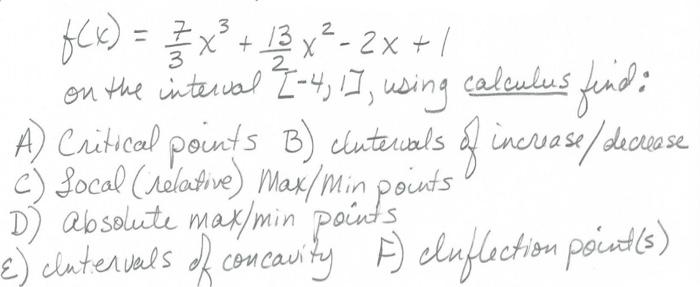 f(x) = 7/3 x³ + 13/2 x² - 2x + 1
on the interval [-4, 1], using calculus find:
A) Critical points B) Intervals of increase/decrease
C) Local (relative) Max/Min points
D) absolute max/min points
E) Intervals of concavity F) Inflection point(s)